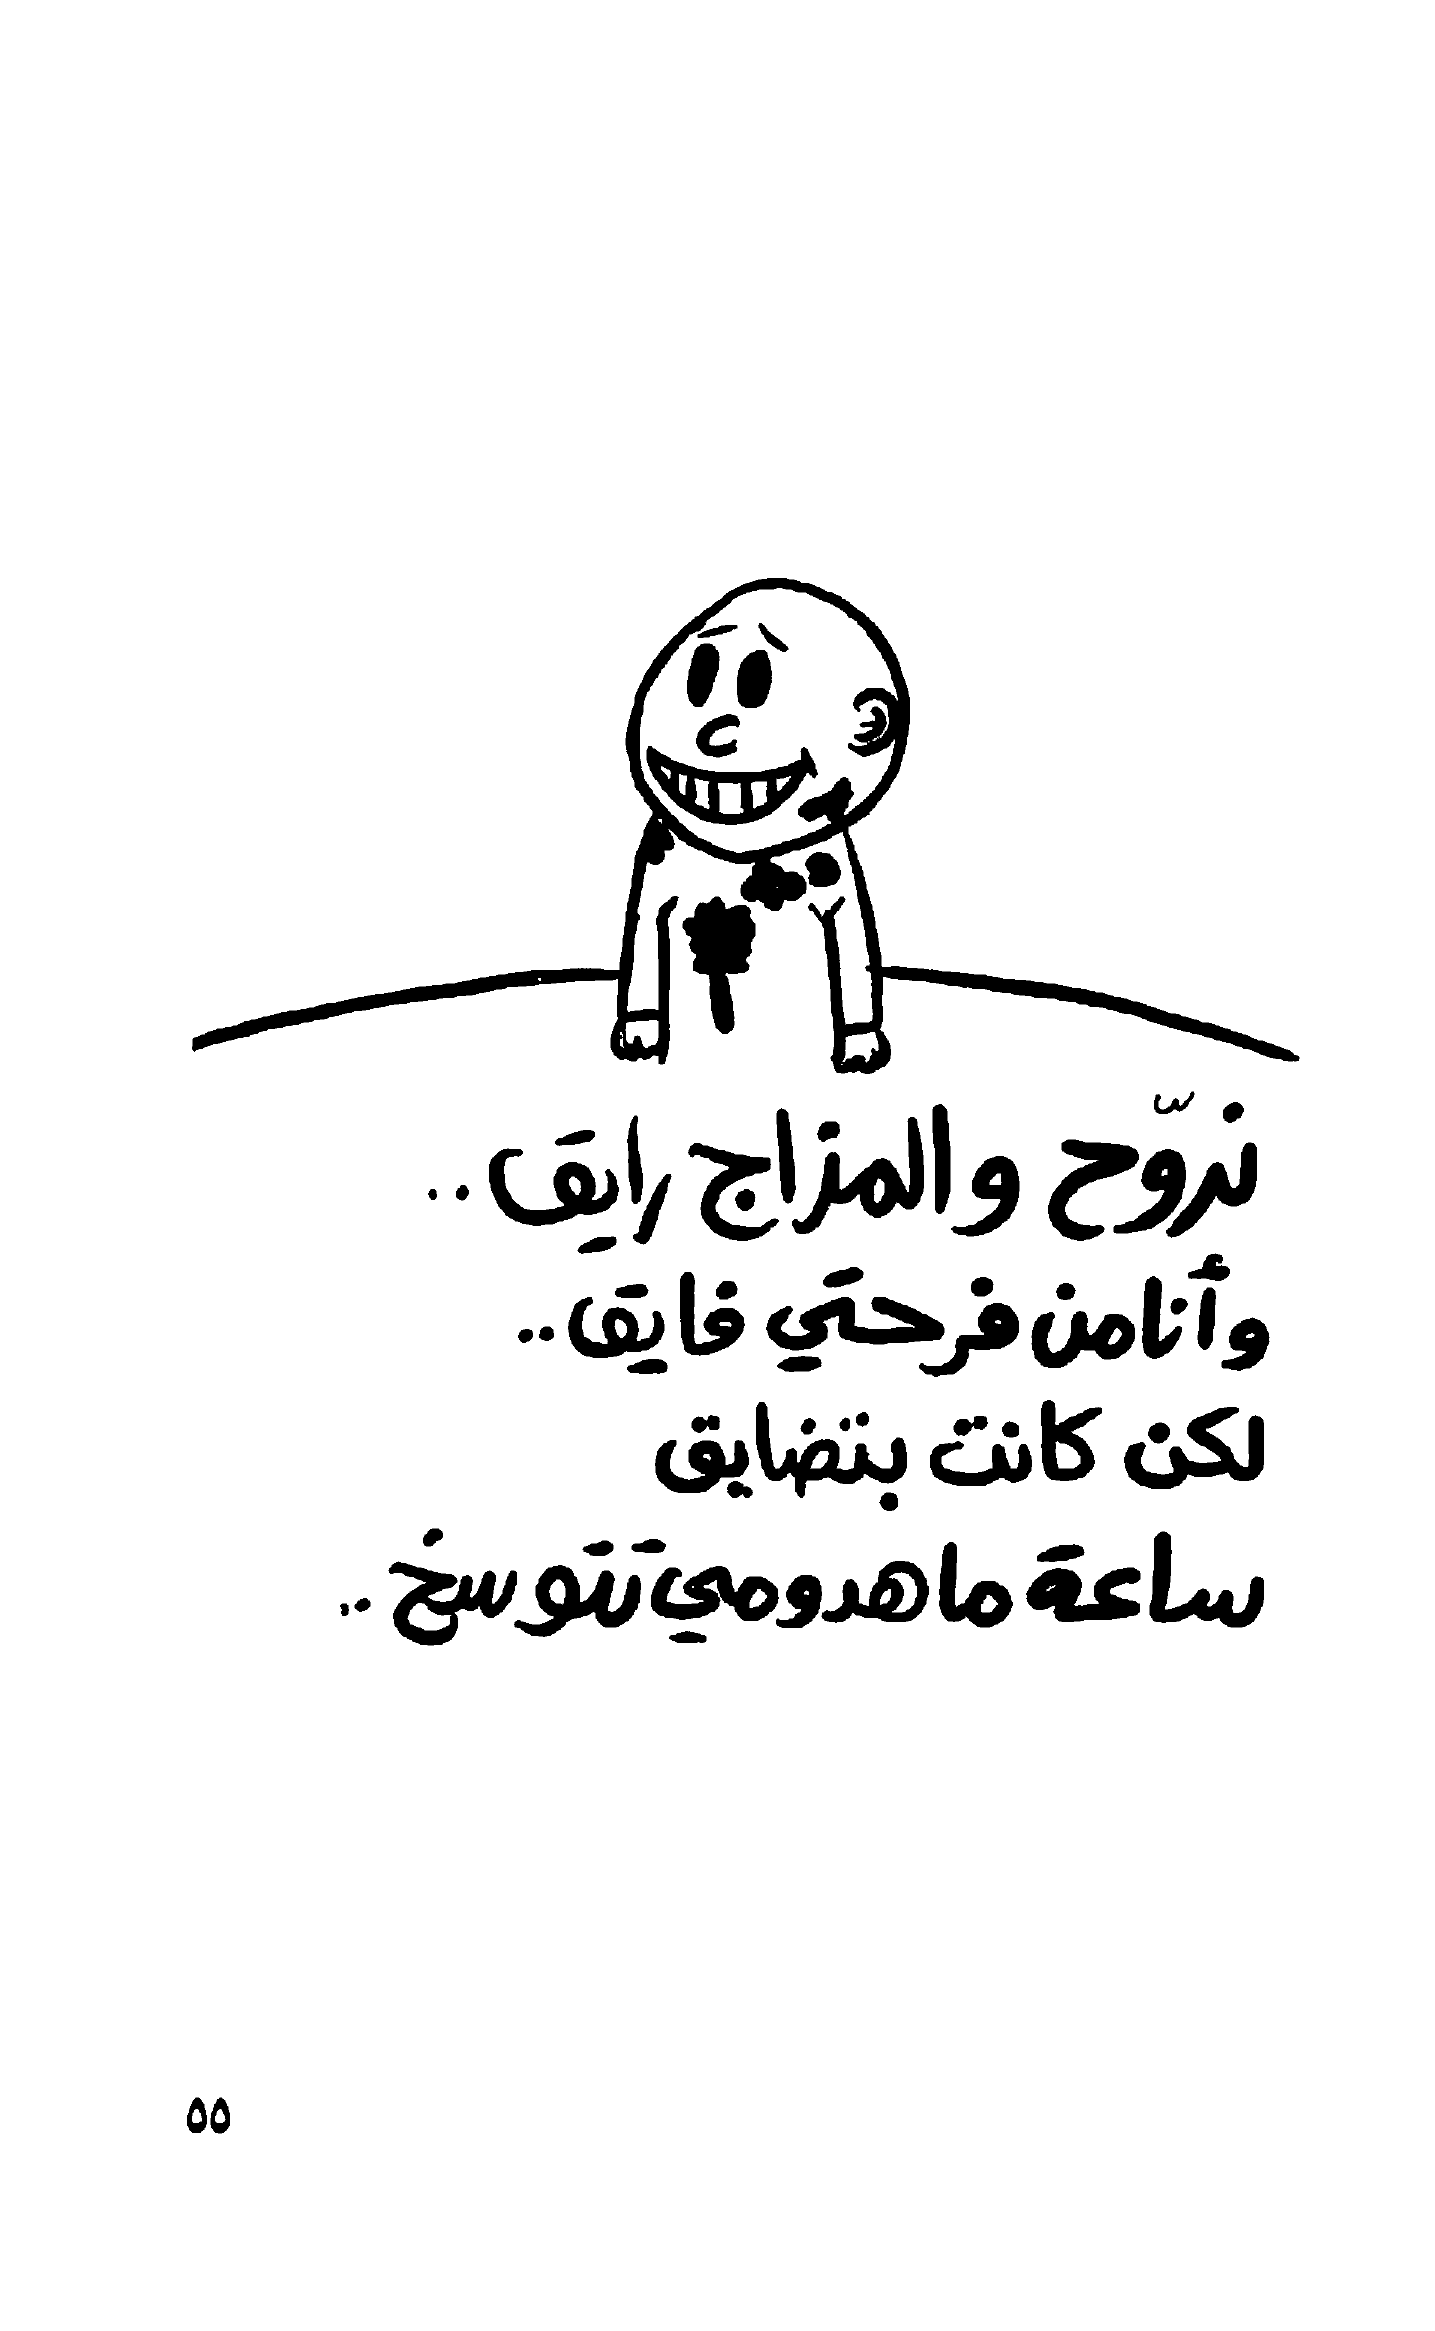 نروّح والمزاج رايق..
وأنا من فرحتي فايق..
لكن كانت بتضايق
ساعة ما هدومي تتوسخ..
٥٥